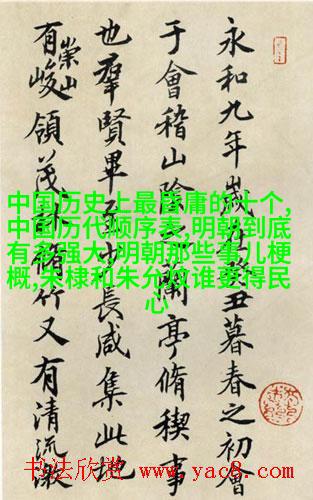 永和九年歲在癸丑暮春之初會
于會稽山陰之蘭亭脩稧事
也羣賢畢至少長咸集此地
有崇山峻領茂林脩竹又有清流激
中国历史上最昏庸的十个,
中国历代顺序表,明朝到底
有多强大,明朝那些事儿梗
概,朱棣和朱允炆谁更得民
心
书法欣赏 www.yac8.com